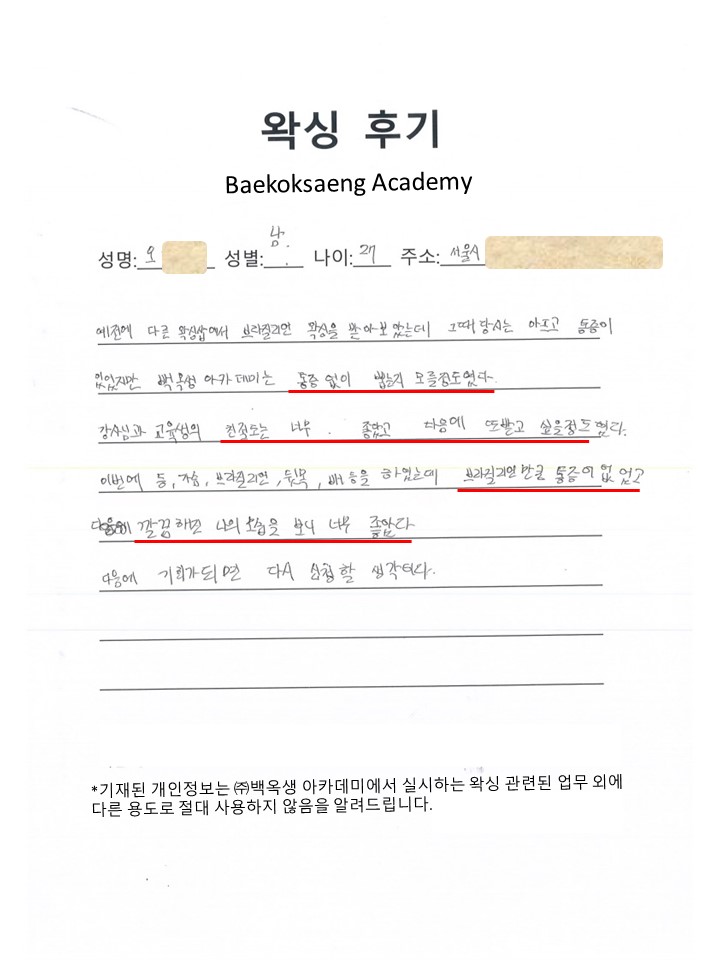 왁싱 후기
Baekoksaeng Academy
성명: 오 성별: 남. 나이: 27 주소: 서울시
예전에 다른 왁싱샵에서 브라질리언 왁싱을 받아보았는데 그때 당시는 아프고 통증이
있었지만 백옥생 아카데미는 통증 없이 뽑는지 모를정도였다.
강사님과 교육생의 친절도는 너무 좋았고 다음에 또받고 싶을정도였다.
이번에 등, 가슴, 브라질리언, 뒷목, 배 등을 하였는데 브라질리언만큼 통증이 없었고
깔끔해진 나의 모습을 보니 너무 좋았다
다음에 기회가되면 다시 신청할 생각이다.
*기재된 개인정보는 ㈜백옥생 아카데미에서 실시하는 왁싱 관련된 업무 외에
다른 용도로 절대 사용하지 않음을 알려드립니다.